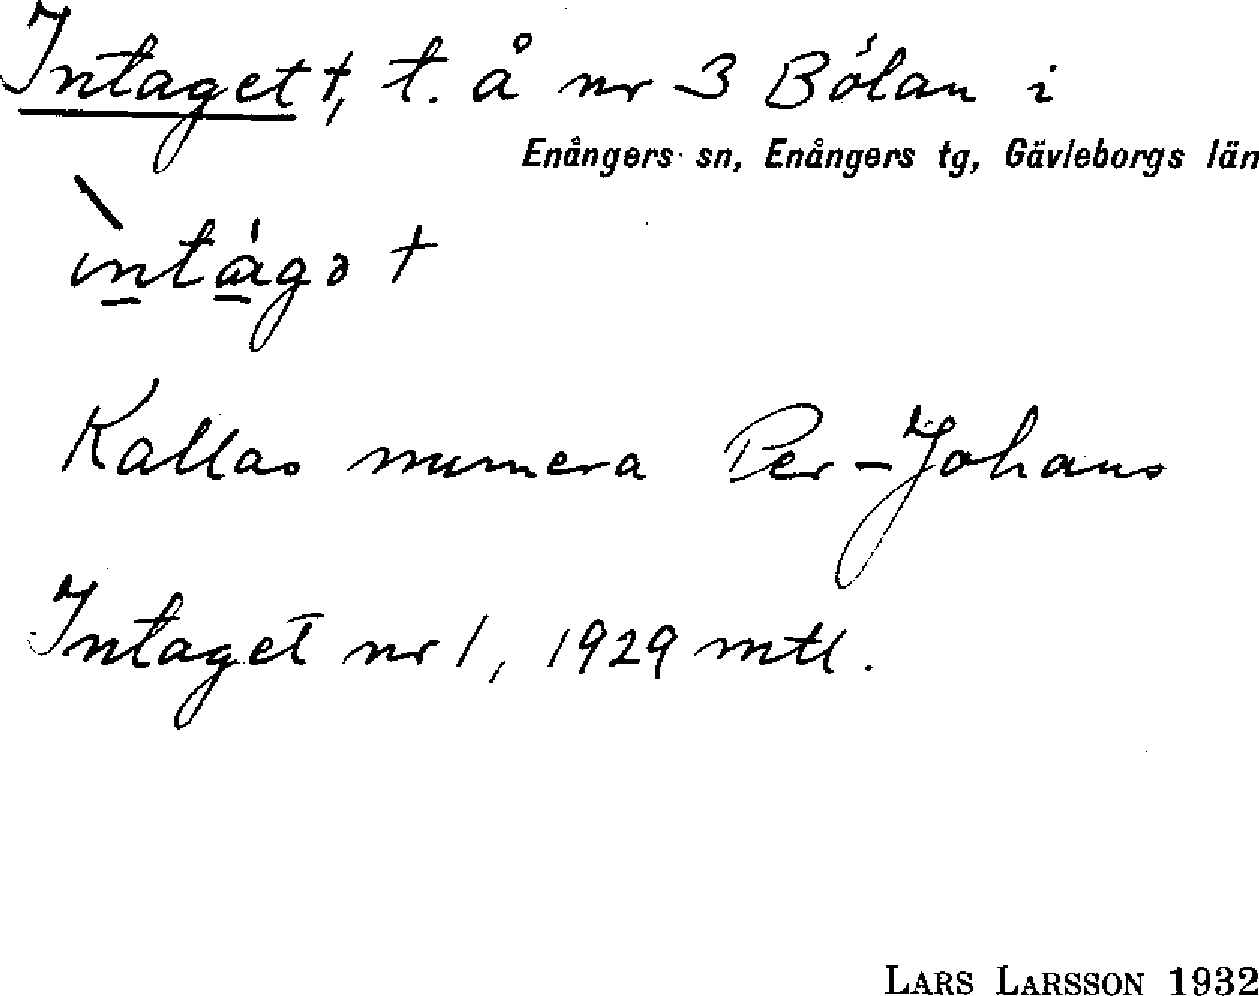 Intaget †, t. å nr 3 Bölan i
Enångers sn, Enångers tg, Gävleborgs län
ı̀ntágə †
Kallas numera Per-Johans
Intaget nr 1, 1929 mtl.
LARS LARSSON 1932